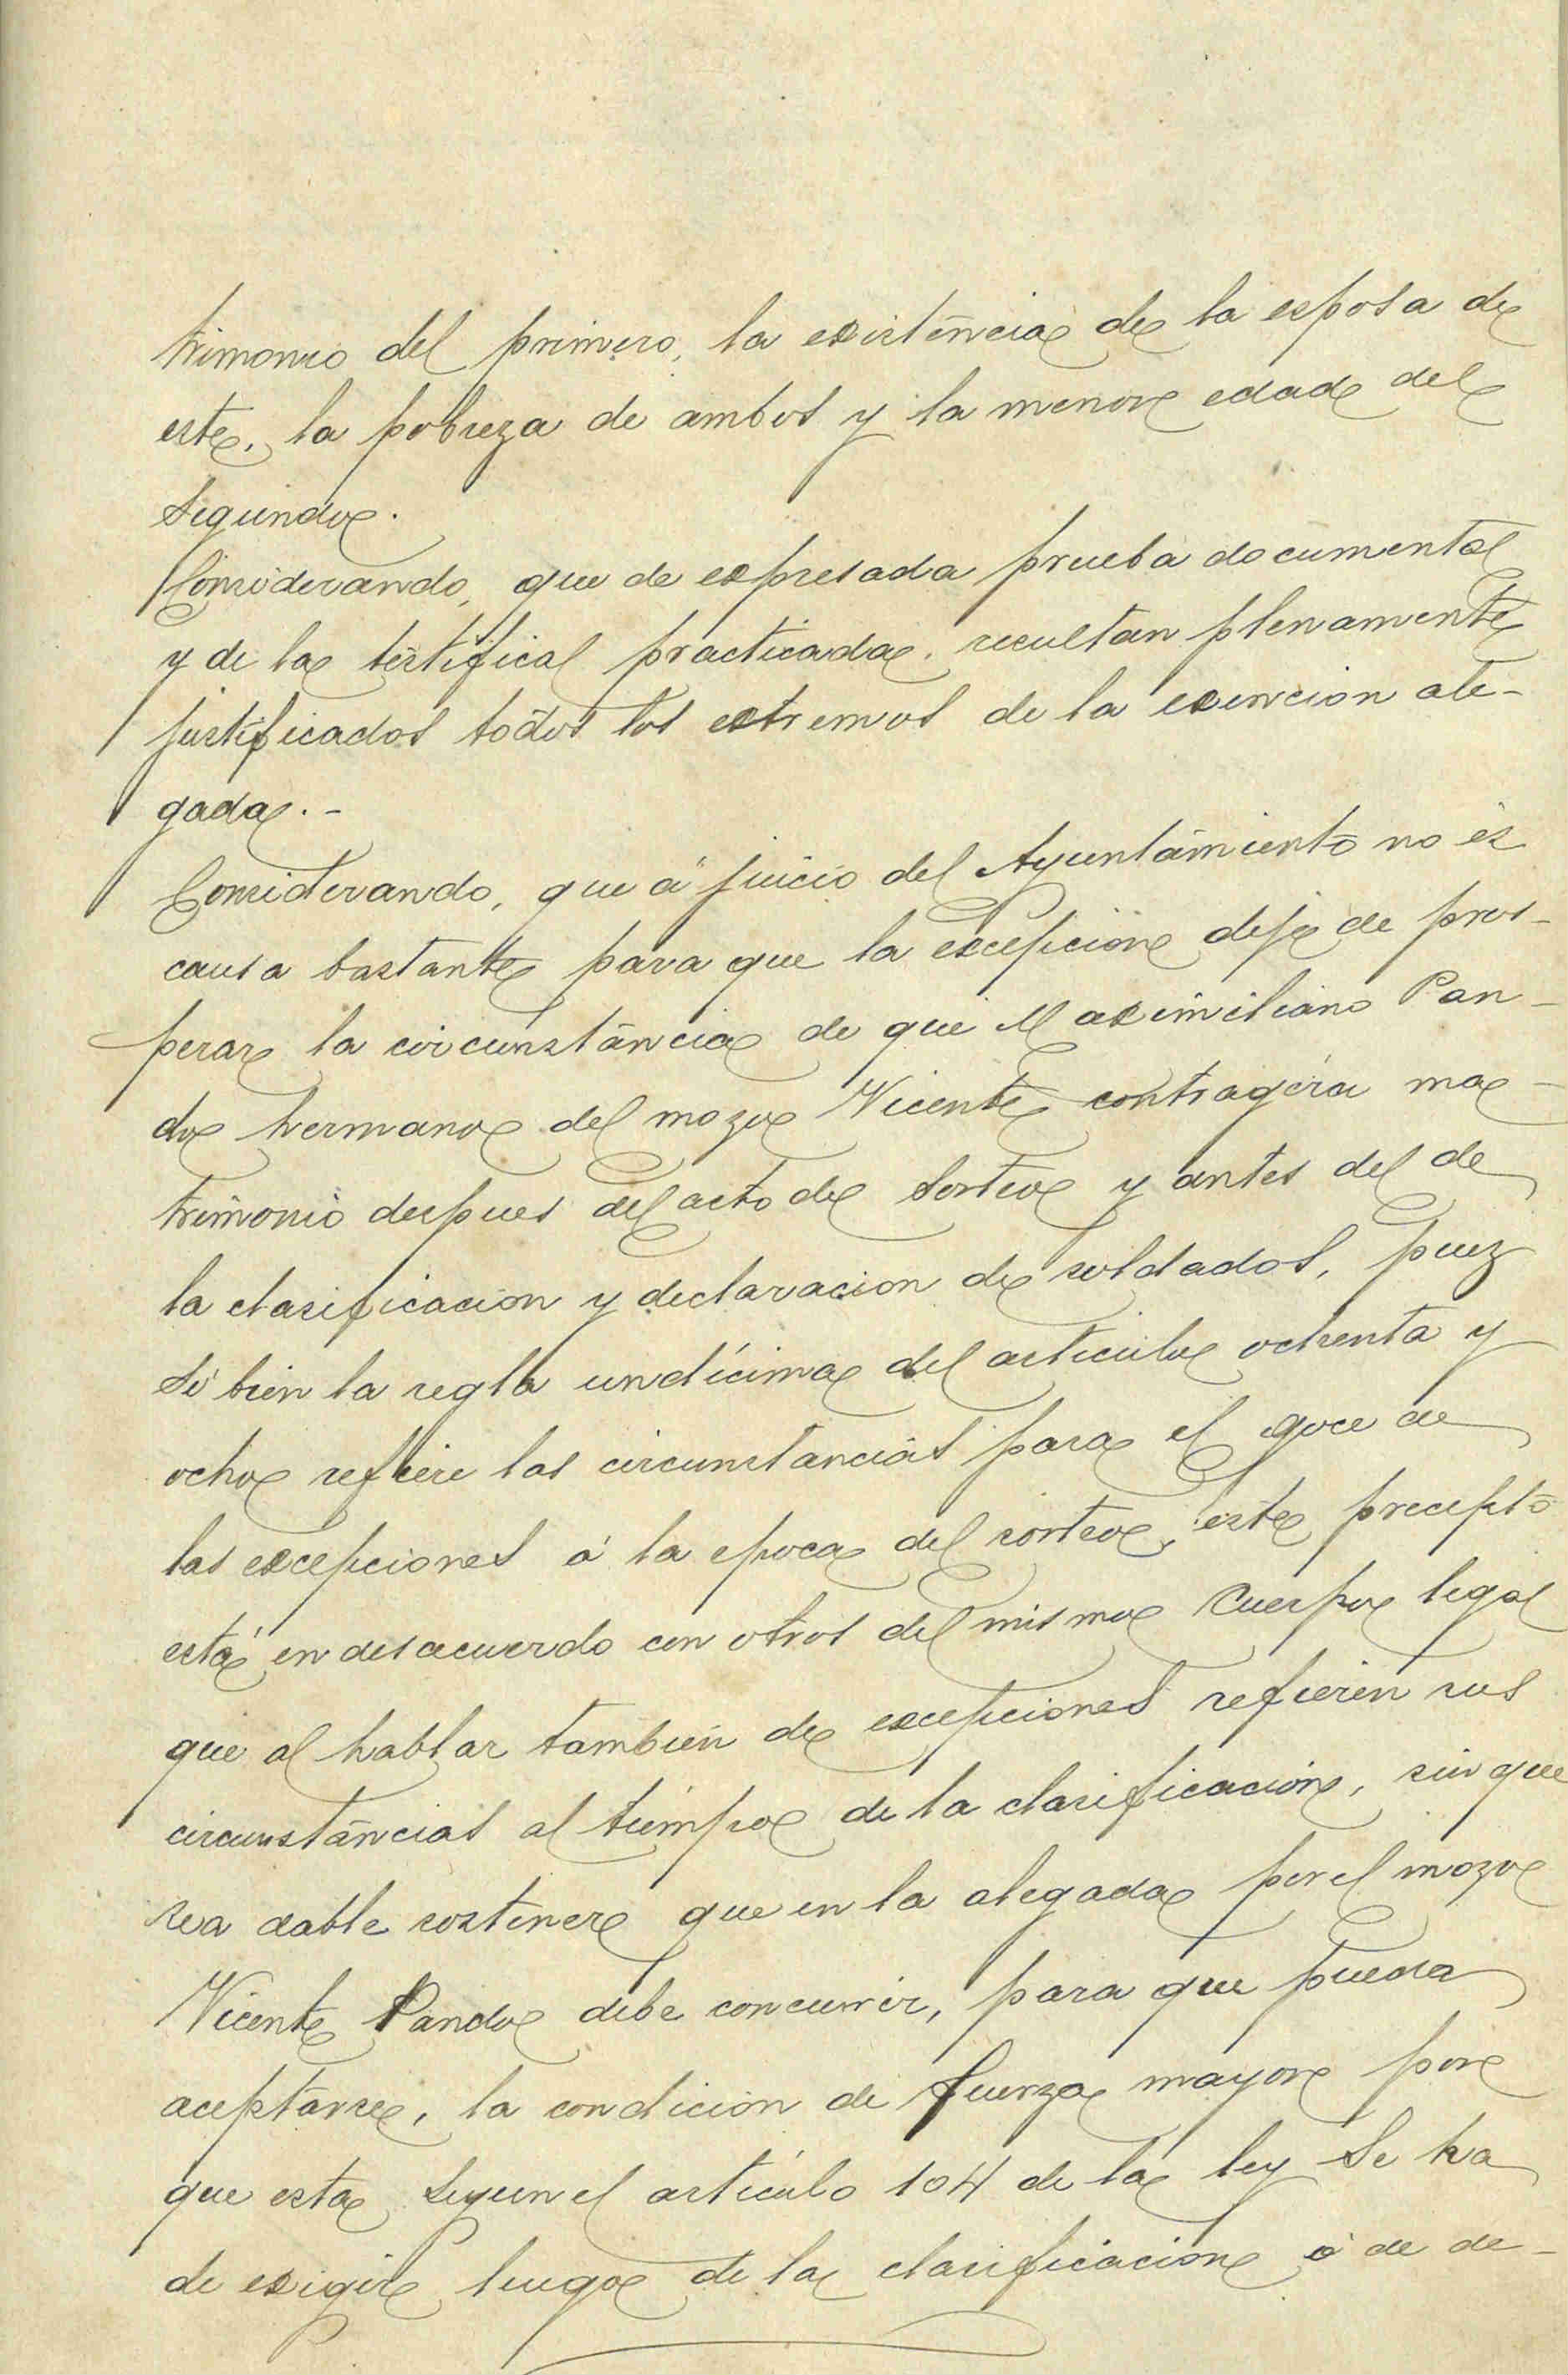 trimonio del primero, la existencia de la esposa de
este, la pobreza de ambos y la menor edad del
segundo.
Considerando, que de expresada prueba documental
y de la testifical practicada, resultan plenamente
justificados todos los extremos de la exencion ale-
gada.-
Considerando, que á juicio del Ayuntamiento no es
causa bastante para que la excepcion deje de pros-
perar la circunstancia de que Maximiliano Pan-
do hermano del mozo Vicente contragera ma-
trimonio despues del acto de sorteo y antes del de
la clasificacion y declaracion de soldados, pues
si bien la regla undécima del articulo ochenta y
ocho refiere las circunstancias para el goce de
las excepciones á la epoca del sorteo, este precepto
está en desacuerdo con otros del mismo Cuerpo legal
que al hablar tambien de excepciones refieren sus
circunstancias al tiempo de la clasificacion, sin que
sea dable sostener que en la alegada por el mozo
Vicente Pando debe concurrir, para que pueda
aceptarse, la condicion de fuerza mayor por
que esta segun el articulo 104 de la ley se ha
de exigir luego de la clasificacion ó de de-